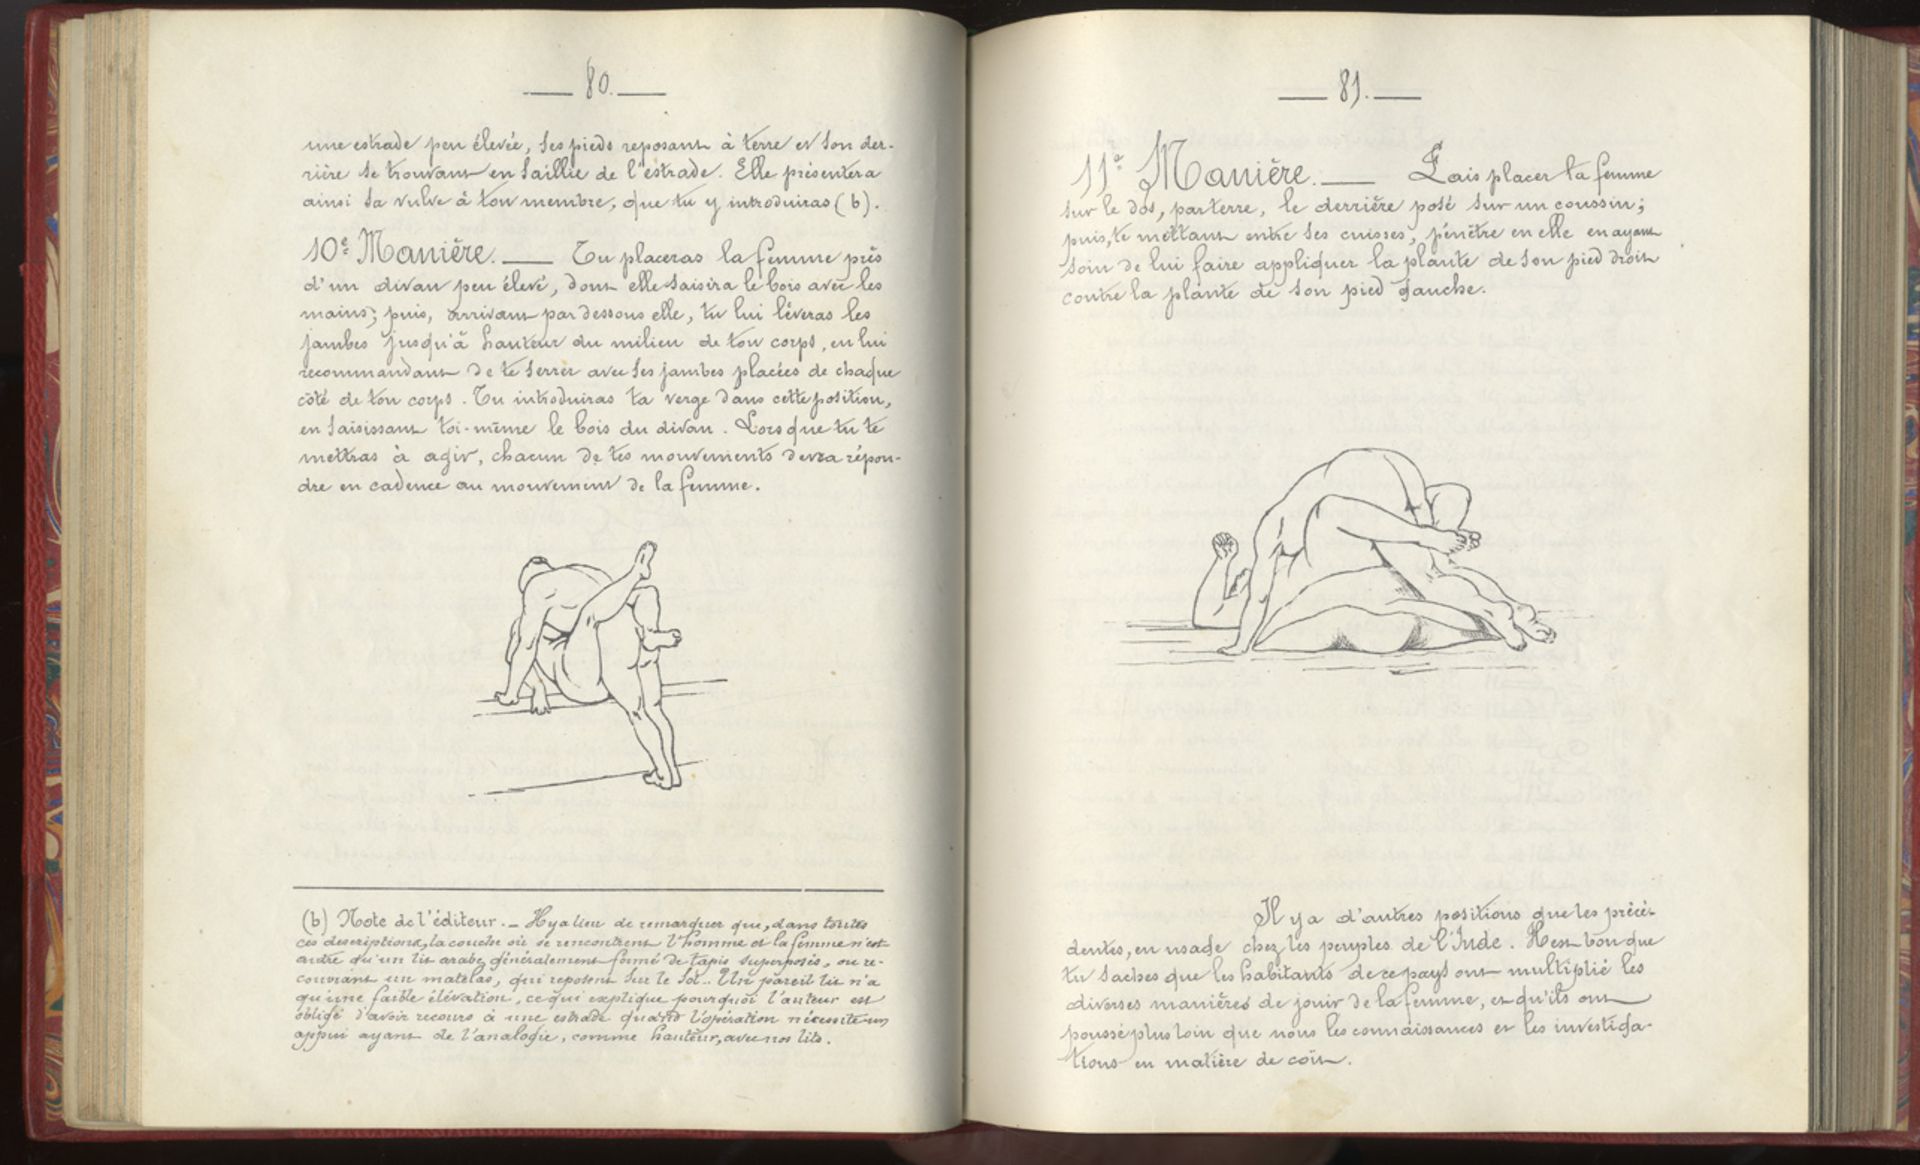 80.
une estrade peu élevée, ses pieds reposant à terre et son der-
rière se trouvant en saillie de l'estrade. Elle présentera
ainsi sa vulve à ton membre, que tu y introduiras (b).
10e Manière. — Tu placeras la femme près
d'un divan peu élevé, dont elle saisira le bois avec les
mains; puis, arrivant par dessous elle, tu lui lèveras les
jambes jusqu'à hauteur du milieu de ton corps, en lui
recommandant de te serrer avec ses jambes placées de chaque
côté de ton corps. Tu introduiras ta verge dans cette position,
en saisissant toi-même le bois du divan. Lorsque tu te
mettras à agir, chacun de tes mouvements devra répon-
dre en cadence au mouvement de la femme.
(b) Note de l'éditeur. – Il y a lieu de remarquer que, dans toutes
ces descriptions, la couche où se rencontrent l'homme et la femme n'est
autre qu'un lit arabe généralement formé de tapis superposés, ou re-
couvrant un matelas, qui reposent sur le sol. Un pareil lit n'a
qu'une faible élévation, ce qui explique pourquoi l'auteur est
obligé d'avoir recours à une estrade quand l'opération nécessite un
appui ayant de l'analogie, comme hauteur, avec nos lits.
81.
11e Manière. — Fais placer la femme
sur le dos, par terre, le derrière posé sur un coussin;
puis, te mettant entre ses cuisses, pénètre en elle en ayant
soin de lui faire appliquer la plante de son pied droit
contre la plante de son pied gauche.
Il y a d'autres positions que les précé-
dentes, en usage chez les peuples de l'Inde. Il est bon que
tu saches que les habitants de ce pays ont multiplié les
diverses manières de jouir de la femme, et qu'ils ont
poussé plus loin que nous les connaissances et les investiga-
tions en matière de coït.